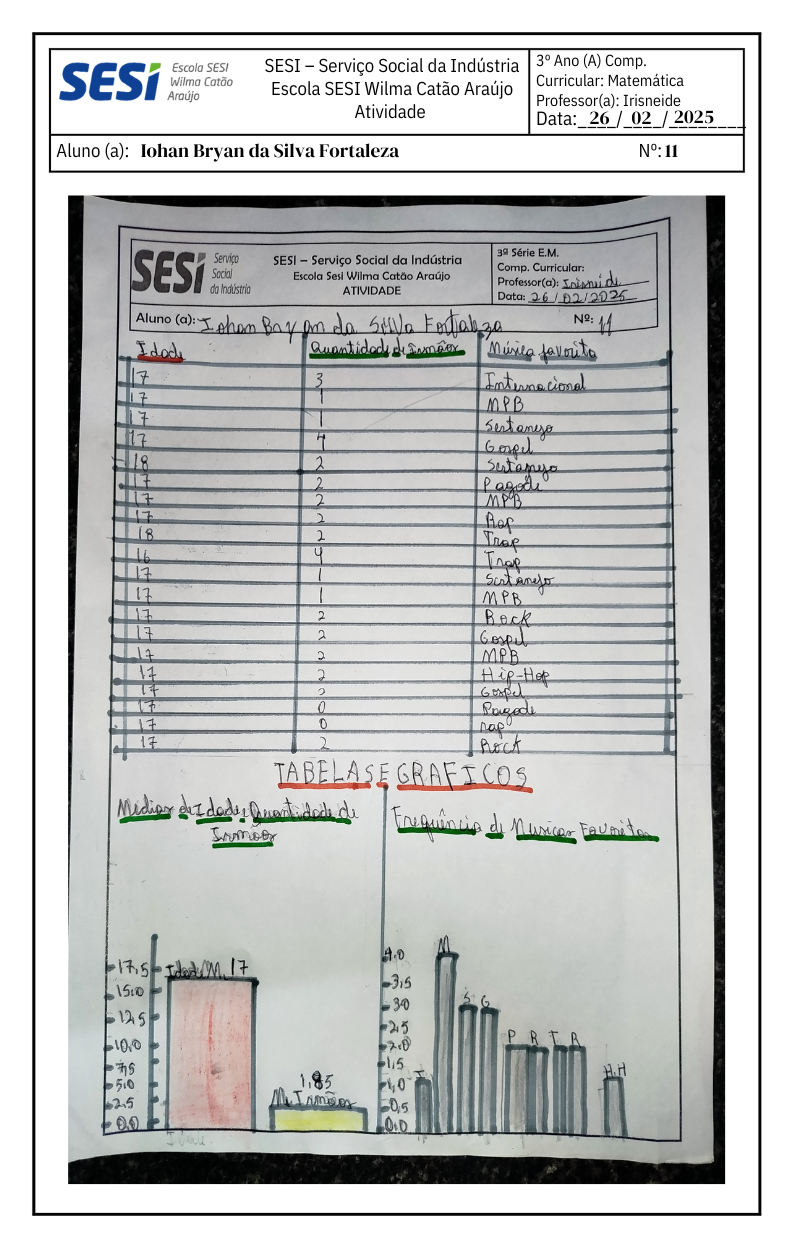 SESI Escola SESI
Wilma Catão
Araújo
SESI – Serviço Social da Indústria
Escola SESI Wilma Catão Araújo
Atividade
3º Ano (A) Comp.
Curricular: Matemática
Professor(a): Irisneide
Data: 26 / 02 / 2025
Aluno (a): Iohan Bryan da Silva Fortaleza Nº: 11
SESI Serviço
Social
da Indústria
SESI – Serviço Social da Indústria
Escola Sesi Wilma Catão Araújo
ATIVIDADE
3ª Série E.M.
Comp. Curricular:
Professor(a): Irisneide
Data: 26/02/2025
Aluno (a): Iohan Bryan da Silva Fortaleza Nº: 11
Idade Quantidade de Irmãos Música favorita
17 3 Internacional
17 1 MPB
17 1 Sertanejo
17 4 Gospel
18 2 Sertanejo
17 2 Pagode
17 2 MPB
17 2 Rap
18 2 Trap
16 4 Trap
17 1 Sertanejo
17 1 MPB
17 2 Rock
17 2 Gospel
17 2 MPB
17 2 Hip-Hop
17 Gospel
17 0 Pagode
17 0 rap
17 2 Rock
TABELAS E GRAFICOS
Médias de Idade e Quantidade de
Irmãos
17,5
15,0
12,5
10,0
7,5
5,0
2,5
0,0
Idade M. 17
1,85
M. Irmãos
Frequência de Musicas Favoritas
4,0
3,5
3,0
2,5
2,0
1,5
1,0
0,5
0,0
I M S G P R T R H.H